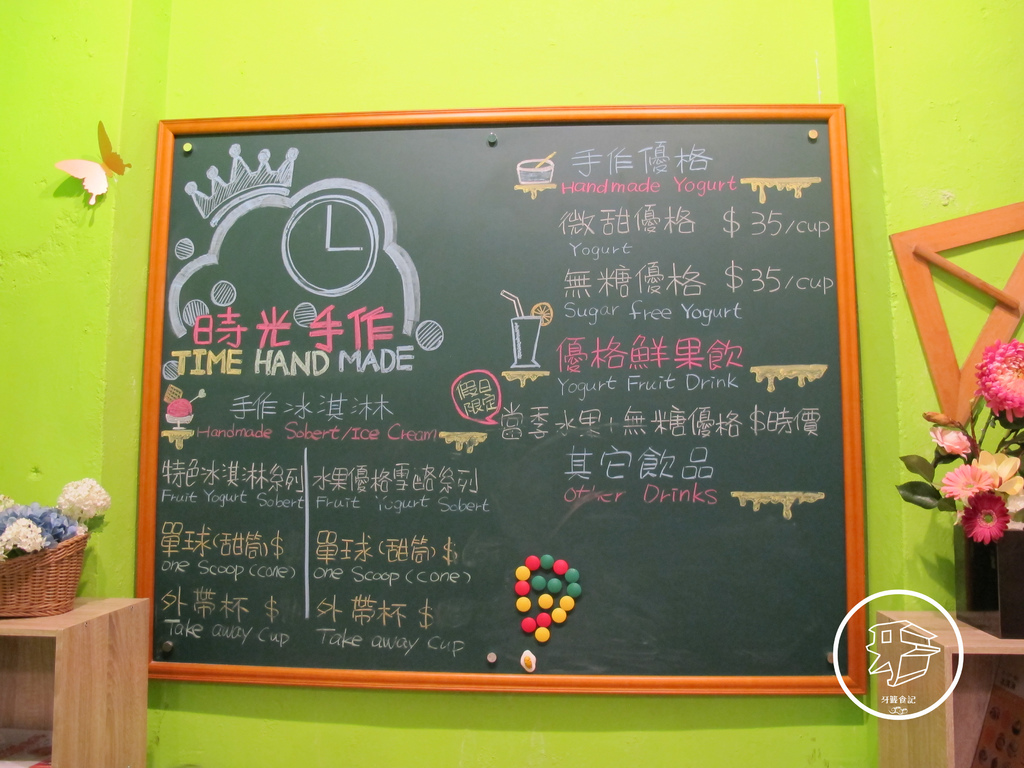 時光手作
TIME HAND MADE
手作冰淇淋
Handmade Sobert/Ice Cream
假日
限定
特色冰淇淋系列
Fruit Yogurt Sobert
單球(甜筒) $
one Scoop (cone)
外帶杯 $
Take away Cup
水果優格雪酪系列
Fruit Yogurt Sobert
單球(甜筒) $
one Scoop (cone)
外帶杯 $
Take away Cup
手作優格
Handmade Yogurt
微甜優格 $35/cup
Yogurt
無糖優格 $35/cup
Sugar free Yogurt
優格鮮果飲
Yogurt Fruit Drink
當季水果+無糖優格 $時價
其它飲品
Other Drinks
牙籤食記